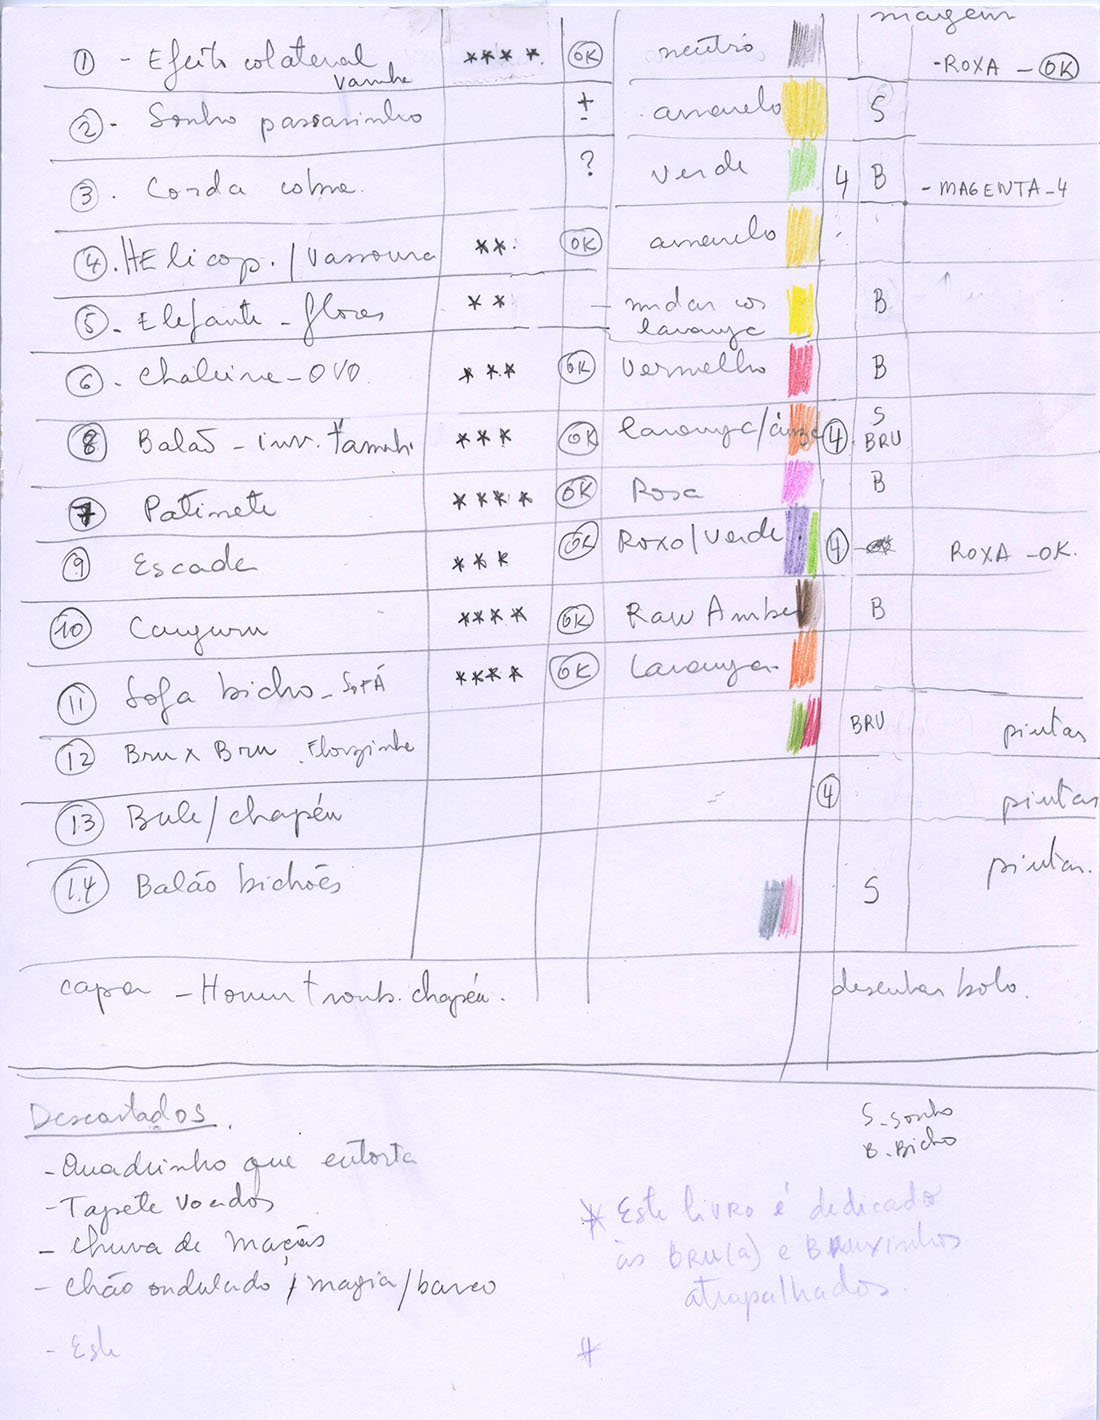 magem
① - Efeito colateral **** OK neutro -ROXA - OK
② - Sonho passarinho ± amarelo S
③ - Corda cobra ? verde 4 B - MAGENTA - 4
④ . HElicop. / Vassoura ** OK amarelo
⑤ - Elefante - flores ** - mudar cos B
laranja
⑥ - Chaleira - OVO *** OK Vermelho B
⑧ Balão - inv. tamanh. *** OK laranja/cinza ④ S
BRU
⑦ Patinete **** OK Rosa B
⑨ Escada *** OK Roxo/Verde ④ ROXA - OK.
⑩ Canguru **** OK Raw Amber B
⑪ Sofa bicho - SOFÁ **** OK Laranja
⑫ Bru x Bru . Florzinha BRU pintar
⑬ Bule / chapéu ④ pintar
⑭ Balão bichões S pintar.
capa - Homem tromb. chapéu. desenhar bolo.
Descartados.
- Quadrinho que entorta
- Tapete Voador
- Chuva de maçãs
- Chão ondulado / magia / barco
- Este
S - Sonho
B. Bicho
* Este livro é dedicado
às BRU(a) e BRUXINHOS
atrapalhados.
#